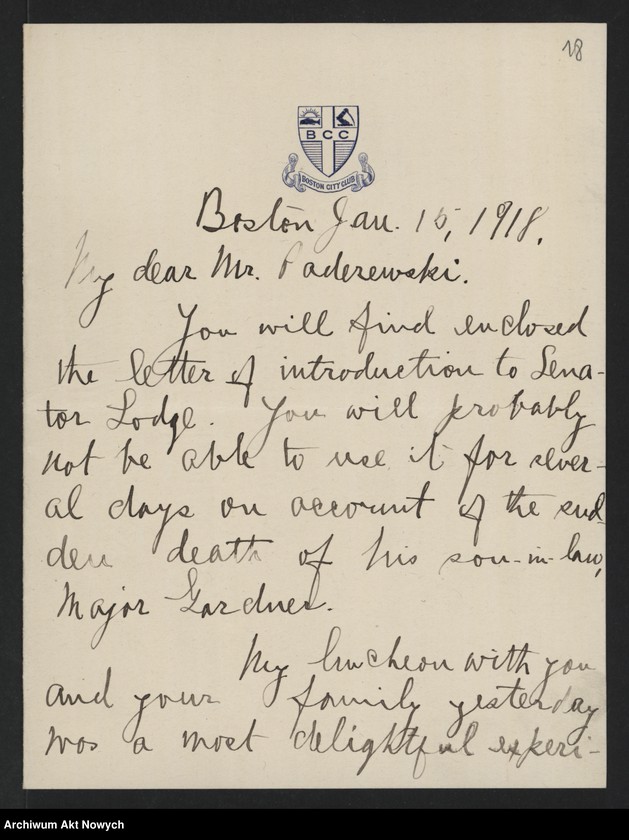 18
BCC
BOSTON CITY CLUB
Boston Jan. 15, 1918.
My dear Mr. Paderewski.
You will find enclosed
the letter of introduction to Sena-
tor Lodge. You will probably
not be able to use it for sever-
al days on account of the sud
den death of his son-in-law,
Major Gardner.
My luncheon with you
and your family yesterday
was a most delightful experi-
Archiwum Akt Nowych